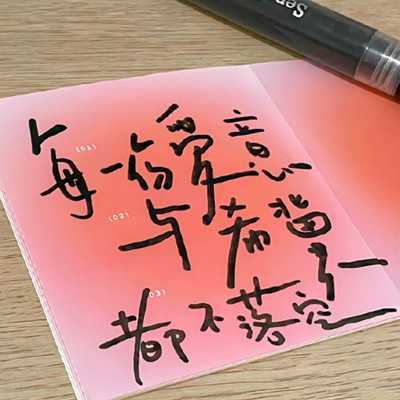 (01)
每一份爱意
(02)
与希望
03)
都不落空